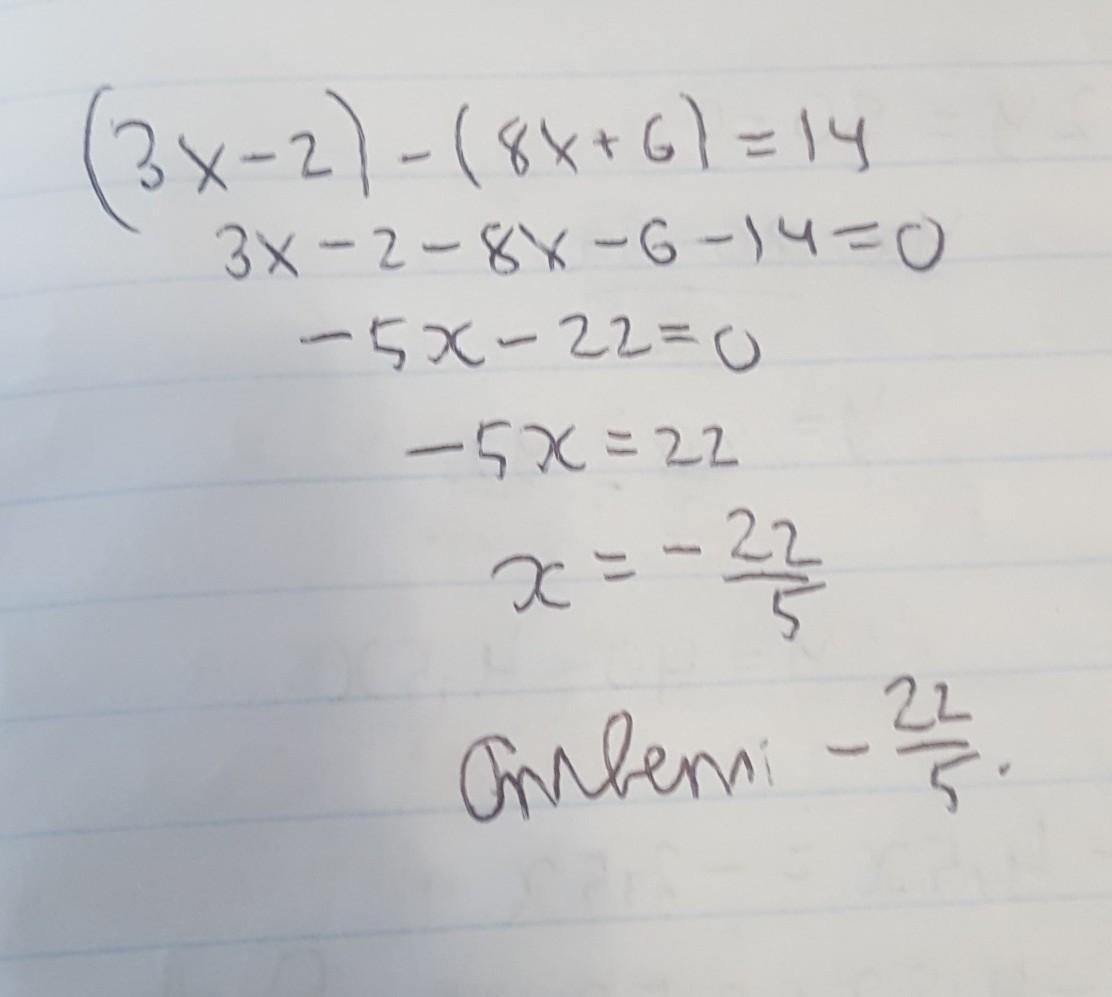 (3x-2)-(8x+6)=14
3x-2-8x-6-14=0
-5x-22=0
-5x=22
x=-22/5
Ответ: -22/5.